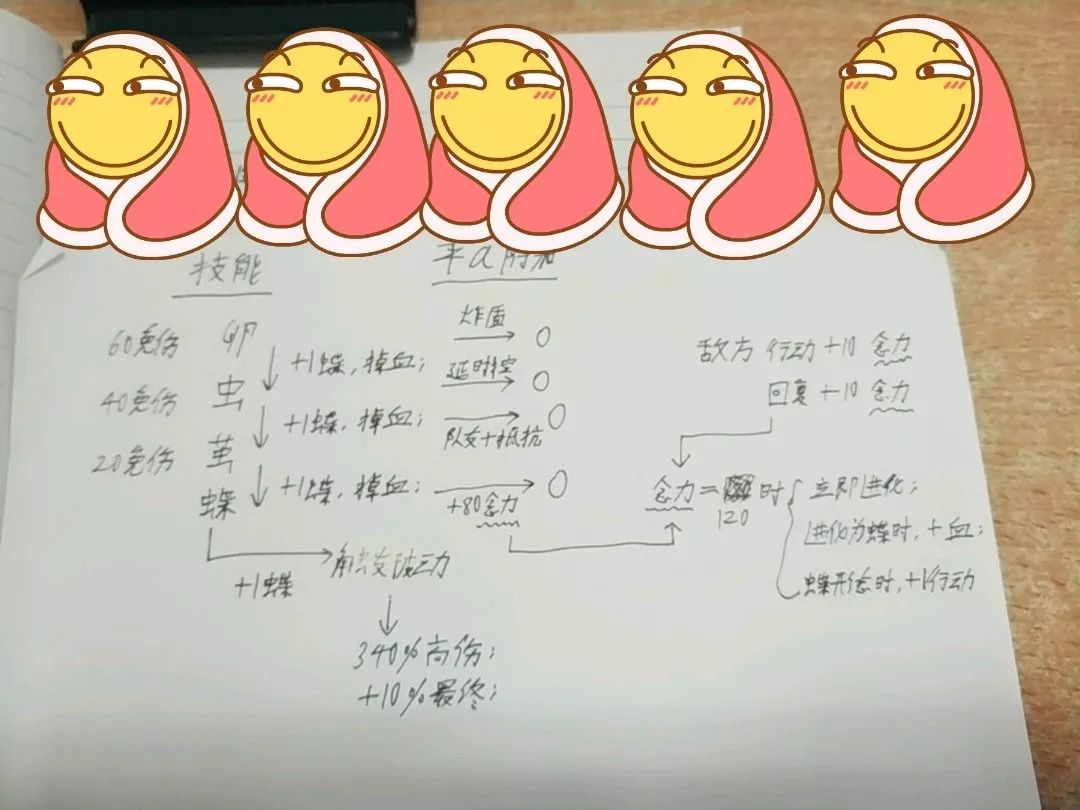 技能
平a附加
60免伤 卵
+1蝶,掉血;
炸盾
40免伤 虫
+1蝶,掉血;
延时控
20免伤 茧
+1蝶,掉血;
队友+抵抗
蝶
+80念力
+1蝶
触蛟波动
340%高伤;
+10%最终;
敌方 行动+10 念力
回复+10 念力
念力=120时
立即进化;
进化为蝶时,+血;
蝶形态时,+1行动